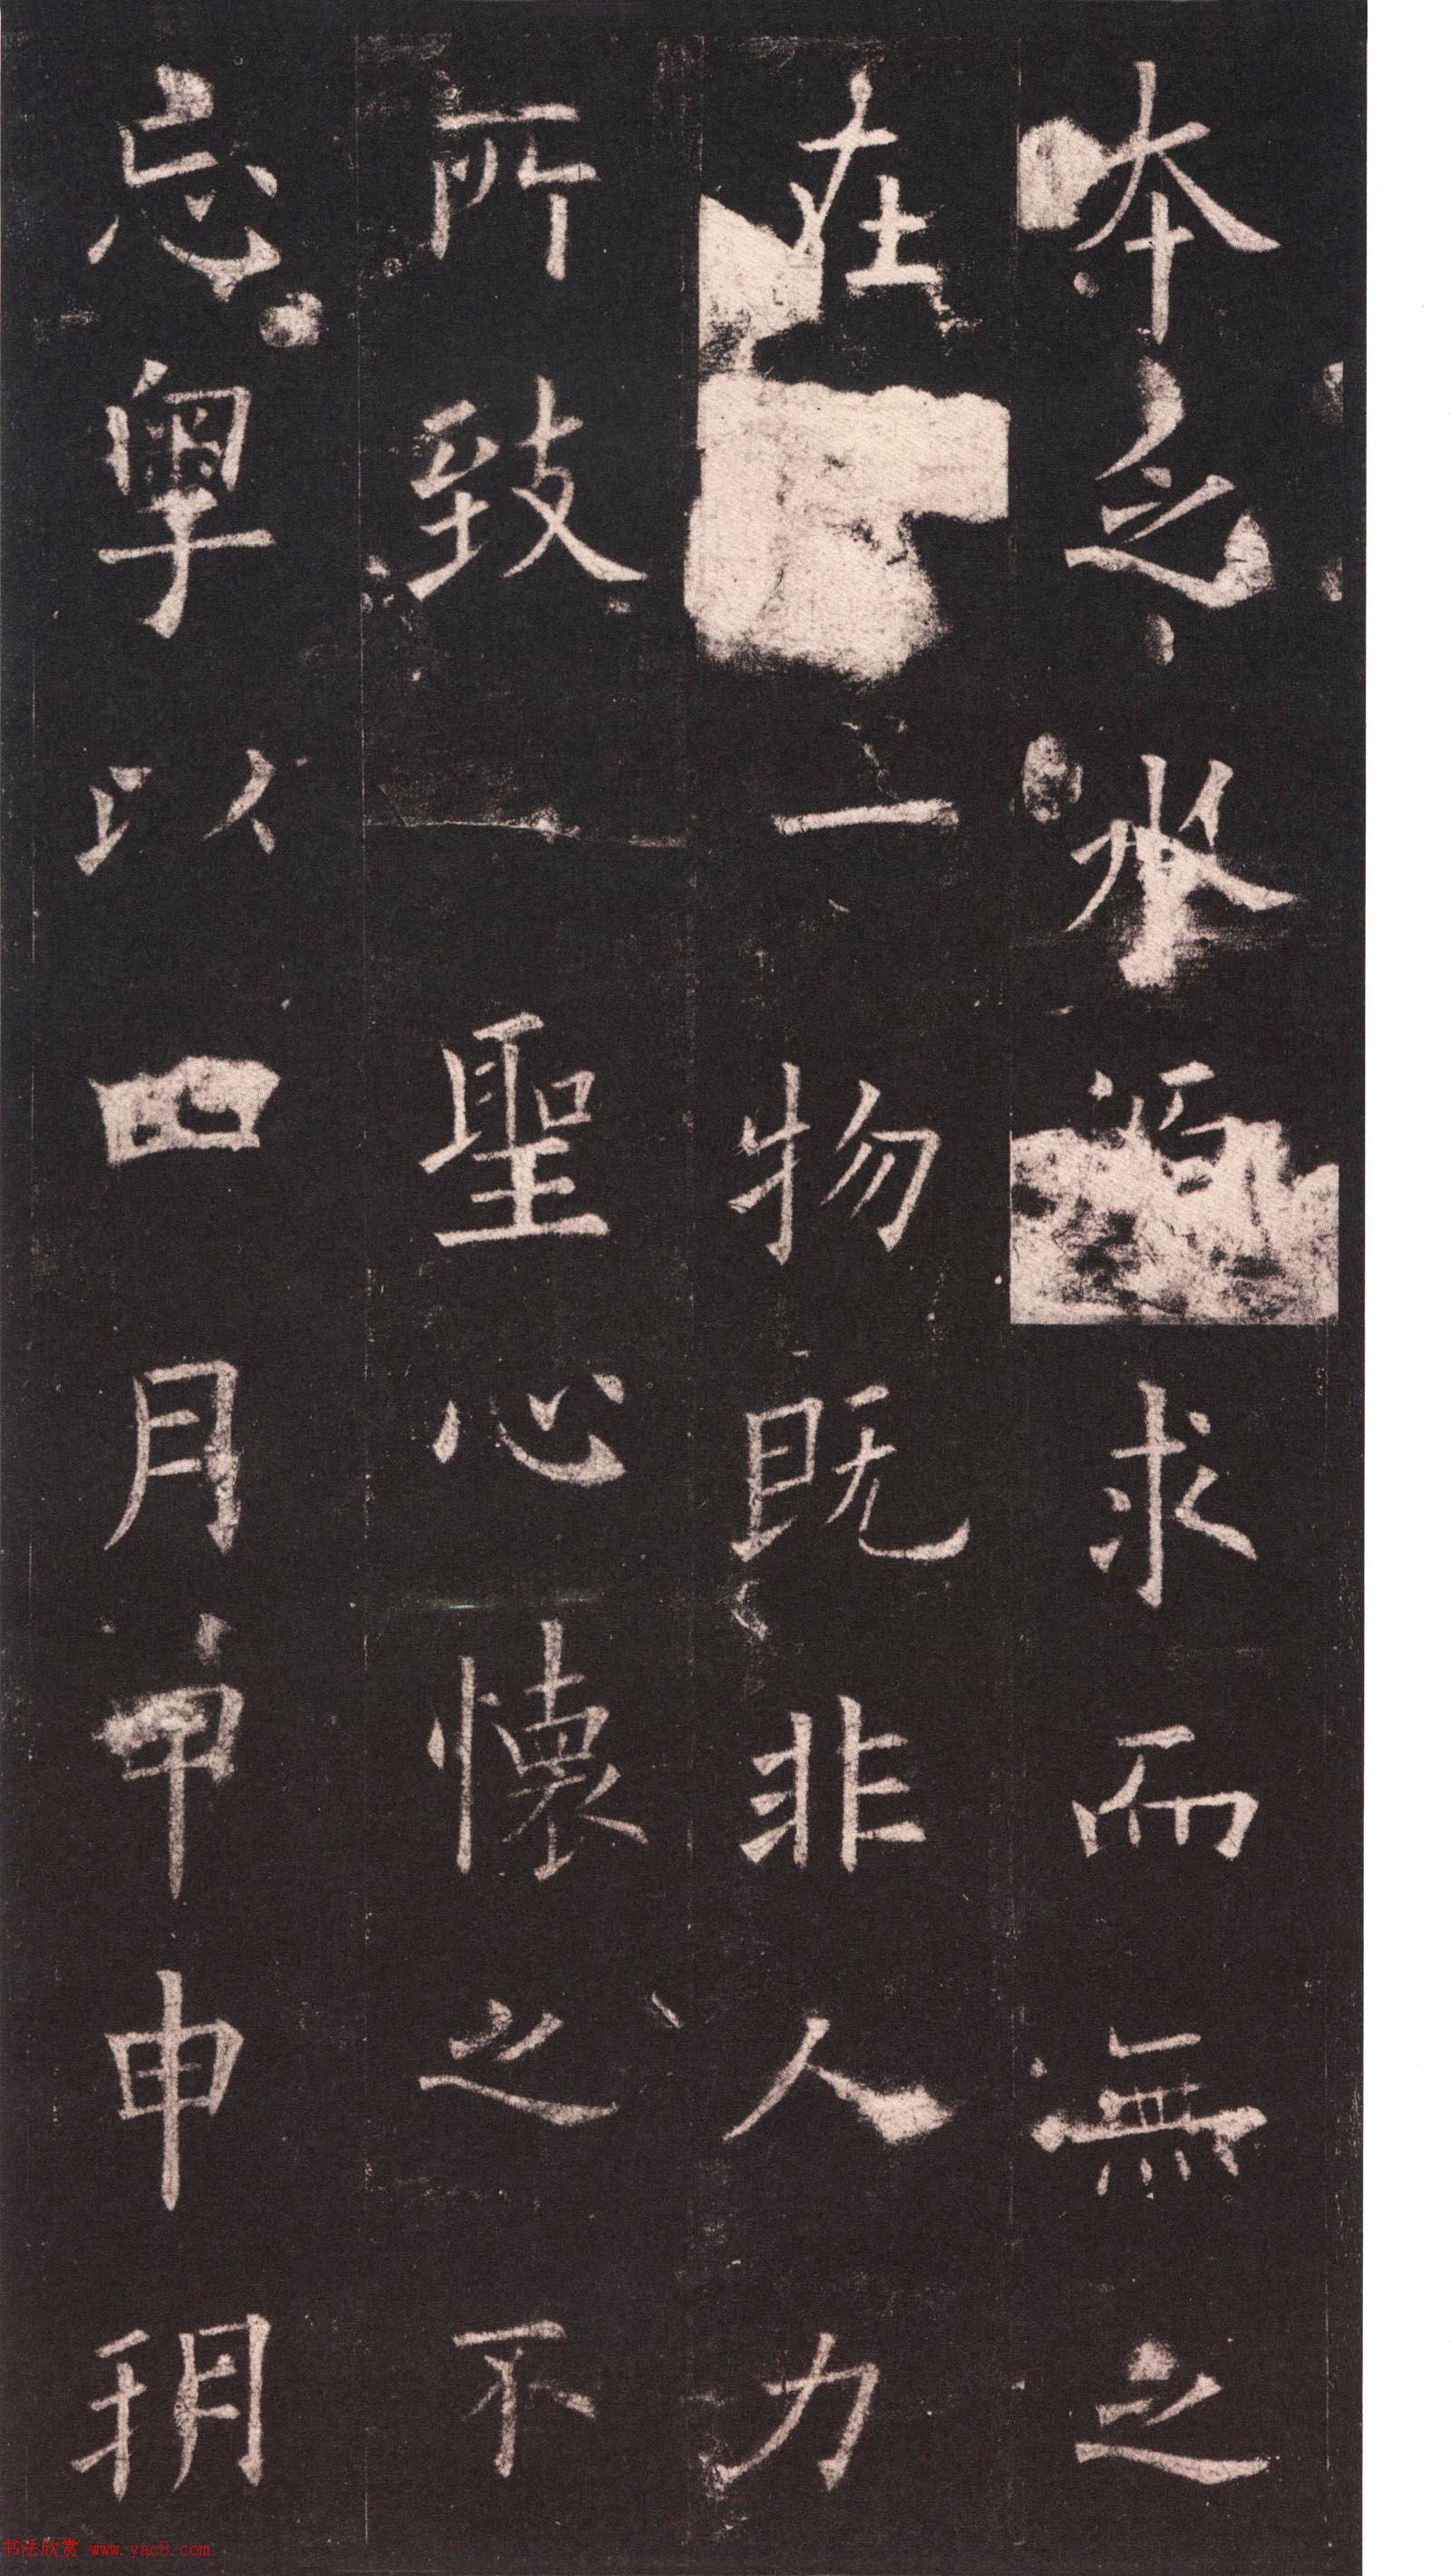 本乏水源求而無之
在一物既非人力
所致聖心懷之不
忘粵以四月甲申朔
书法欣赏 www.yac8.com